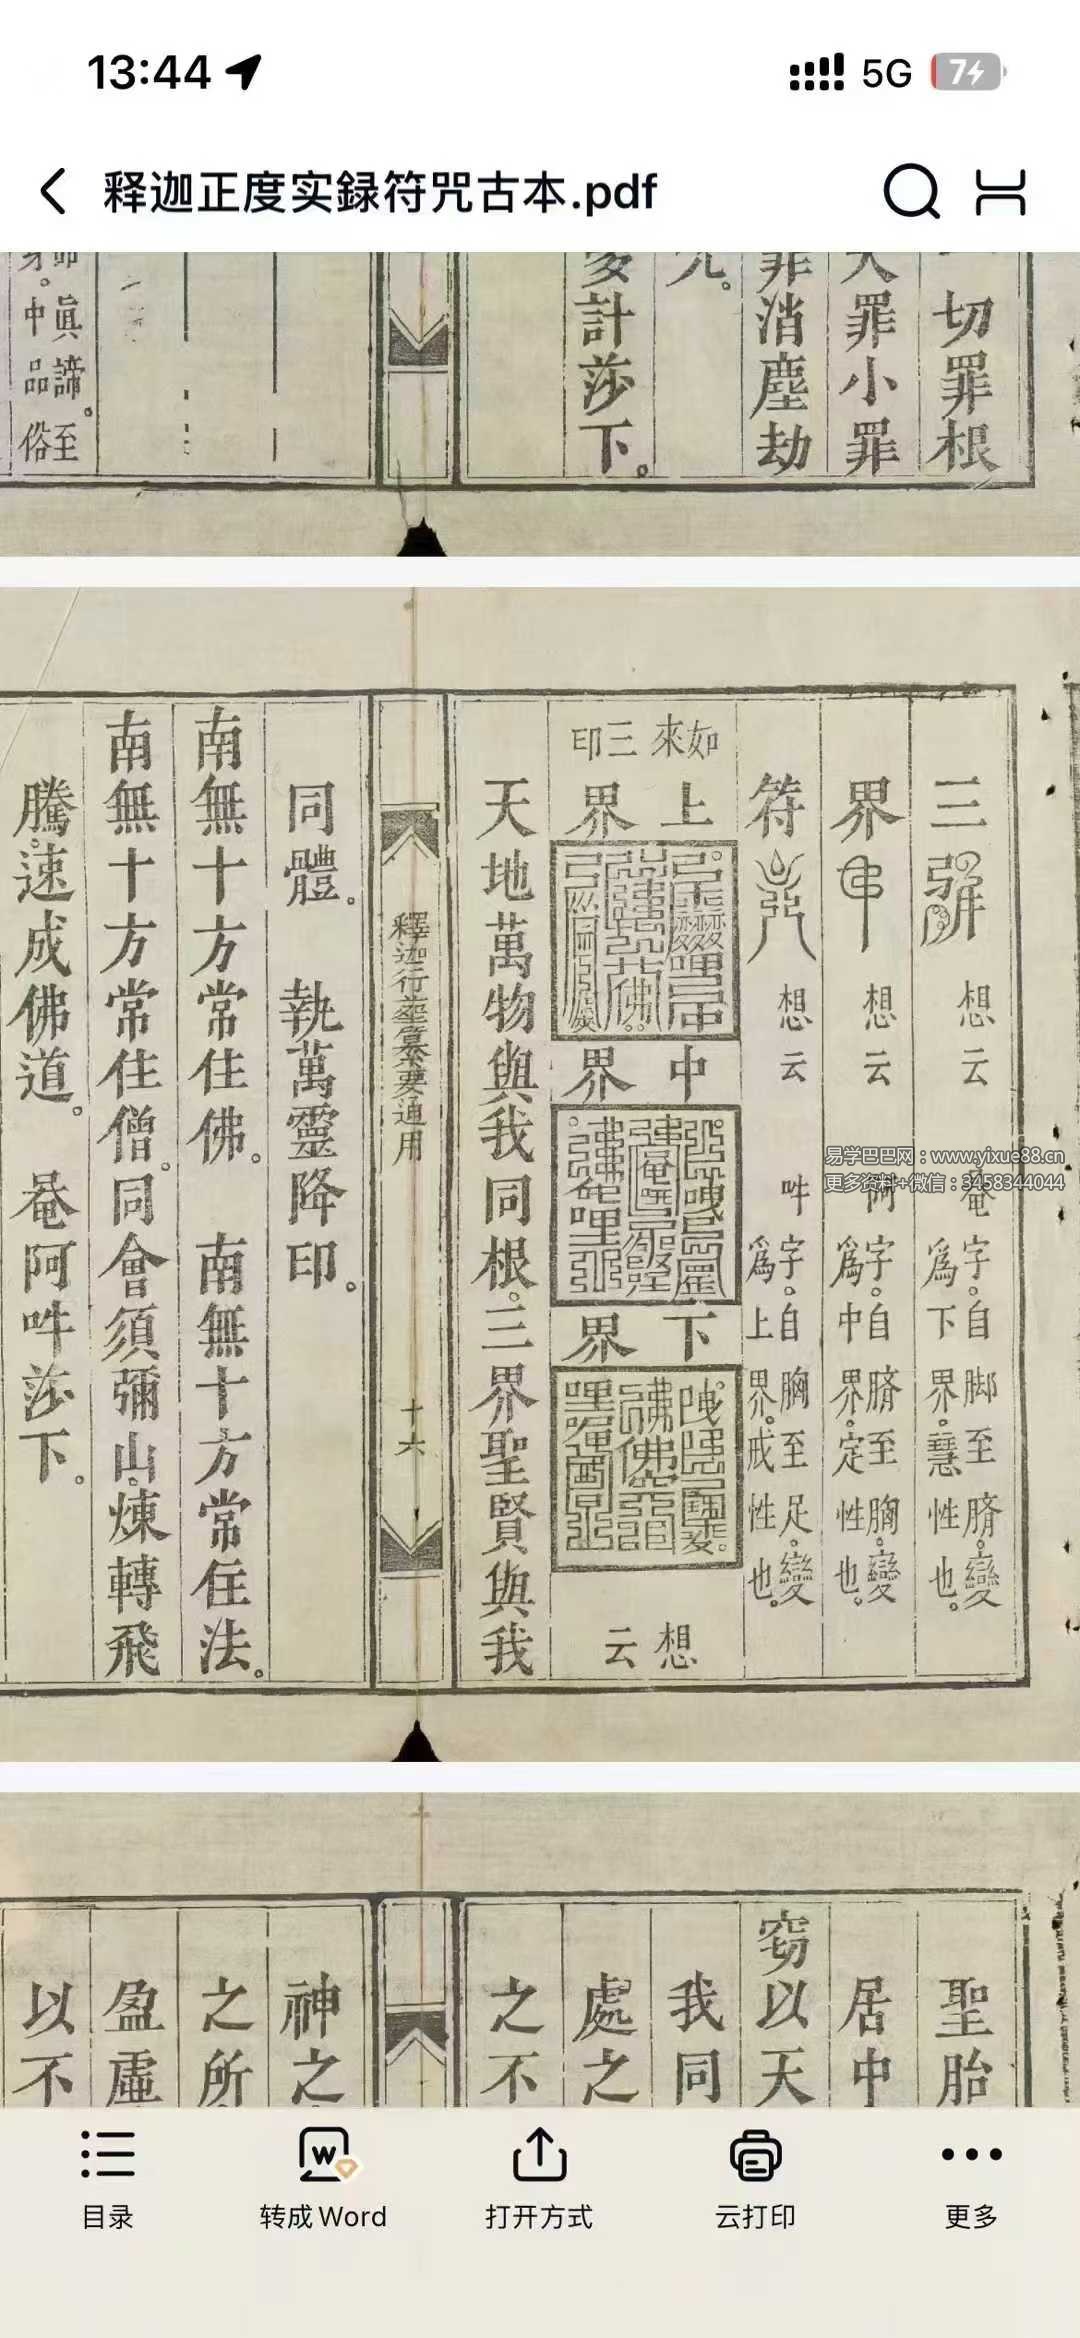 13:44
5G
7
释迦正度实録符咒古本.pdf
切罪根
大罪小罪
罪消塵劫
咒。
娑計莎下。
眞諦。至
身。中品俗
三 想云 菴字。自脚至臍。變爲下界。慧性也。
界 想云 阿字。自臍至胸。變爲中界。定性也。
符 想云 吽字。自胸至足。變爲上界。戒性也。
如來三印
上界
中界
下界
想云
天地萬物與我同根。三界聖賢與我
釋迦行莖纂要通用
十六
同體。 執萬靈降印。
南無十方常住佛。 南無十方常住法。
南無十方常住僧。同會須彌山。煉轉飛
騰。速成佛道。 菴阿吽莎下。
易学巴巴网：www.yixue88.cn
更多资料+微信：3458344044
聖胎
居中
窃以天
我同
處之
之不
神之
之所
盈虛
以不
目录
转成Word
打开方式
云打印
更多